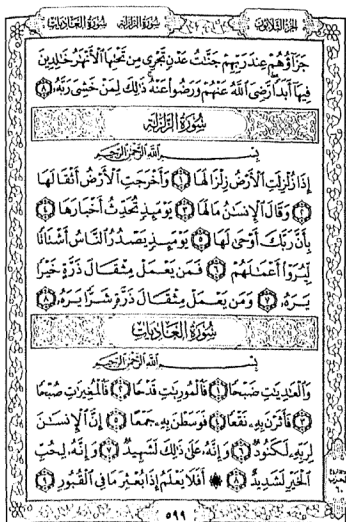 الجزء الثلاثون سورة الزلزلة سورة العاديات
جَزَآؤُهُمْ عِندَ رَبِّهِمْ جَنَّٰتُ عَدْنٍ تَجْرِي مِن تَحْتِهَا ٱلْأَنْهَٰرُ خَٰلِدِينَ
فِيهَآ أَبَدًا رَّضِيَ ٱللَّهُ عَنْهُمْ وَرَضُوا۟ عَنْهُ ذَٰلِكَ لِمَنْ خَشِيَ رَبَّهُۥ ٨
سُورَةُ الزَّلْزَلَةِ
بِسْمِ ٱللَّهِ ٱلرَّحْمَٰنِ ٱلرَّحِيمِ
إِذَا زُلْزِلَتِ ٱلْأَرْضُ زِلْزَالَهَا ١ وَأَخْرَجَتِ ٱلْأَرْضُ أَثْقَالَهَا
٢ وَقَالَ ٱلْإِنسَٰنُ مَا لَهَا ٣ يَوْمَئِذٍ تُحَدِّثُ أَخْبَارَهَا ٤
بِأَنَّ رَبَّكَ أَوْحَىٰ لَهَا ٥ يَوْمَئِذٍ يَصْدُرُ ٱلنَّاسُ أَشْتَاتًا
لِّيُرَوْا۟ أَعْمَٰلَهُمْ ٦ فَمَن يَعْمَلْ مِثْقَالَ ذَرَّةٍ خَيْرًا
يَرَهُۥ ٧ وَمَن يَعْمَلْ مِثْقَالَ ذَرَّةٍ شَرًّا يَرَهُۥ ٨
سُورَةُ العَادِيَاتِ
بِسْمِ ٱللَّهِ ٱلرَّحْمَٰنِ ٱلرَّحِيمِ
وَٱلْعَٰدِيَٰتِ ضَبْحًا ١ فَٱلْمُورِيَٰتِ قَدْحًا ٢ فَٱلْمُغِيرَٰتِ صُبْحًا
٣ فَأَثَرْنَ بِهِۦ نَقْعًا ٤ فَوَسَطْنَ بِهِۦ جَمْعًا ٥ إِنَّ ٱلْإِنسَٰنَ
لِرَبِّهِۦ لَكَنُودٌ ٦ وَإِنَّهُۥ عَلَىٰ ذَٰلِكَ لَشَهِيدٌ ٧ وَإِنَّهُۥ لِحُبِّ
ٱلْخَيْرِ لَشَدِيدٌ ٨ ۞ أَفَلَا يَعْلَمُ إِذَا بُعْثِرَ مَا فِي ٱلْقُبُورِ ٩
٥٩٩